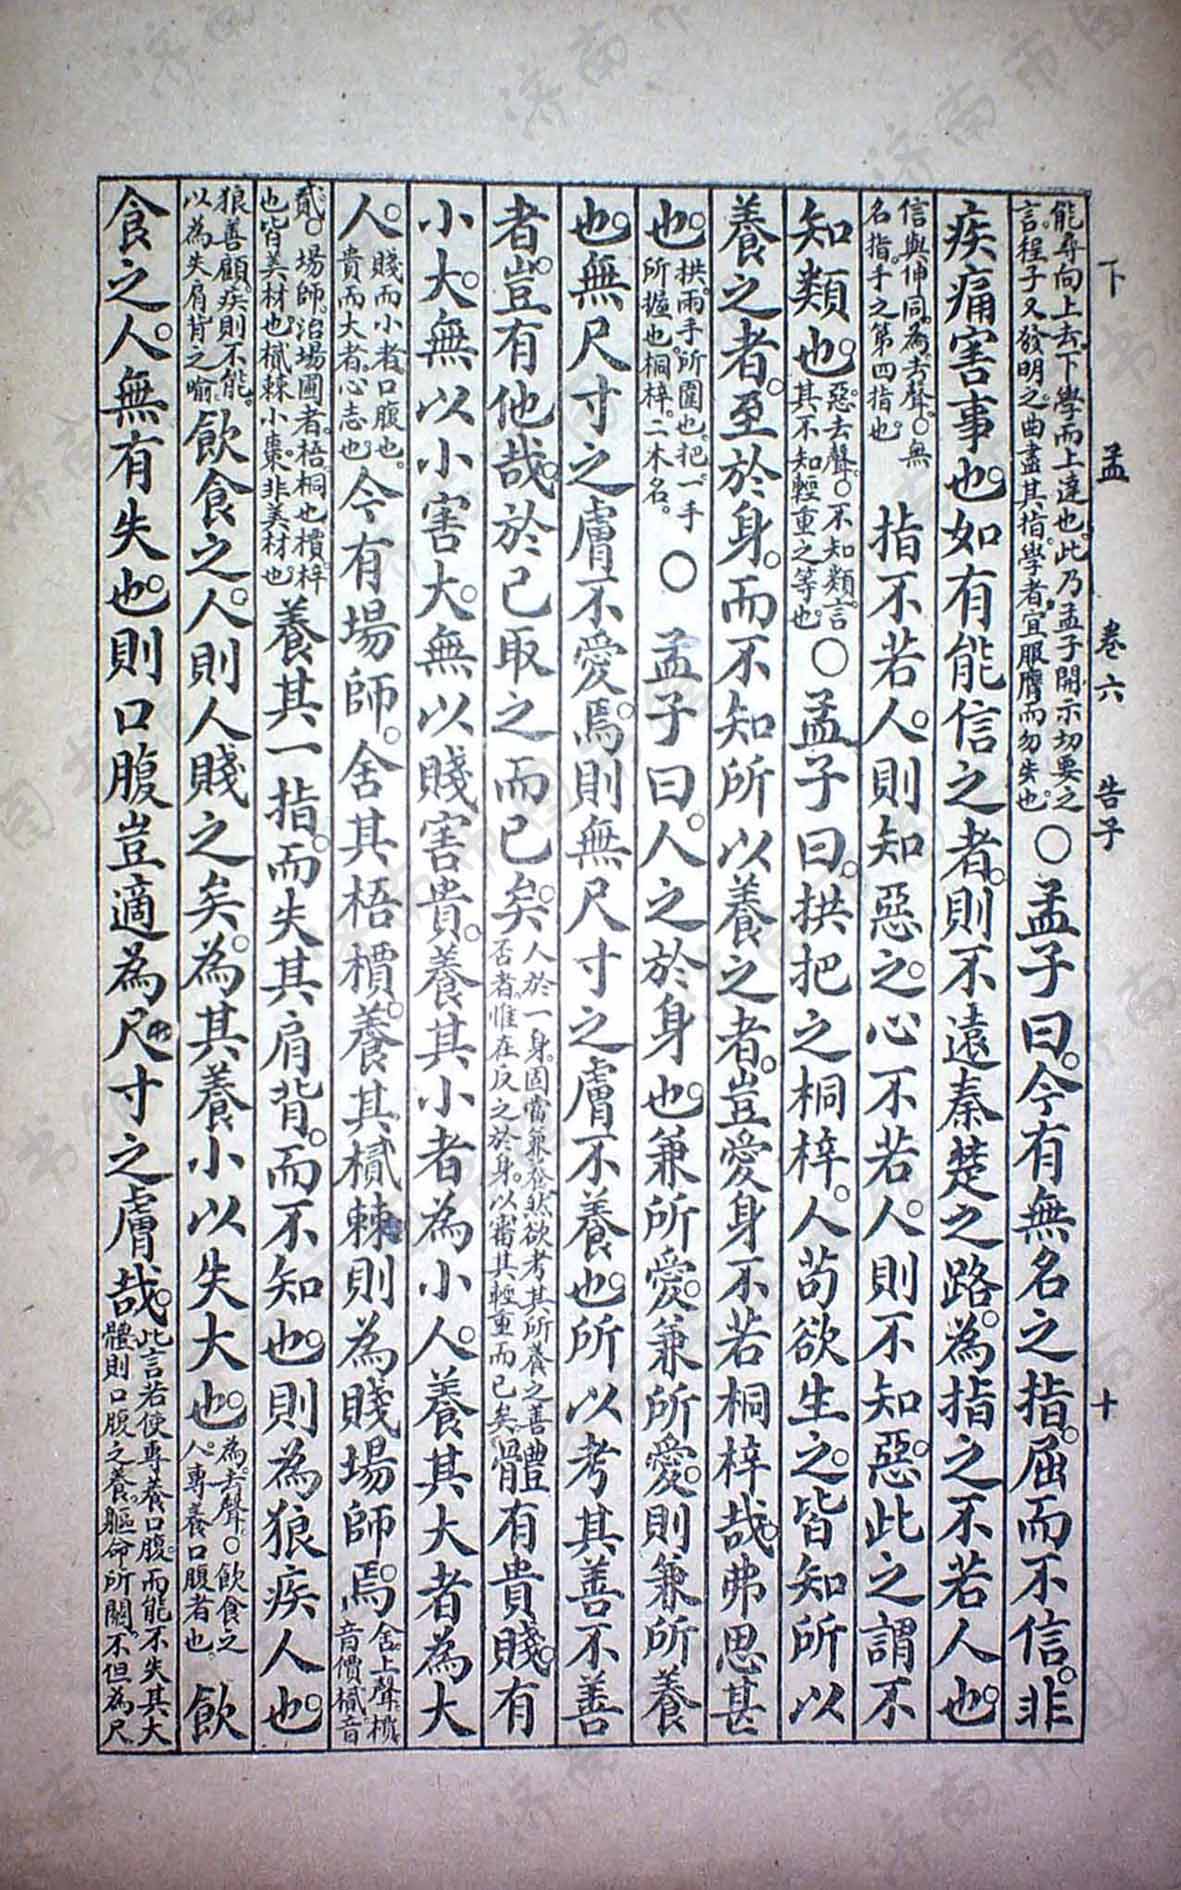 下 孟 卷六 告子 十
能尋向上去。下學而上達也。此乃孟子開示切要之
言。程子又發明之。曲盡其指。學者宜服膺而勿失也。
○孟子曰。今有無名之指。屈而不信。非
疾痛害事也。如有能信之者。則不遠秦楚之路。為指之不若人也。
信與伸同。為去聲。○無
名指。手之第四指也。
指不若人。則知惡之。心不若人。則不知惡。此之謂不
知類也。
惡。去聲。○不知類。言
其不知輕重之等也。
○孟子曰。拱把之桐梓。人苟欲生之。皆知所以
養之者。至於身。而不知所以養之者。豈愛身不若桐梓哉。弗思甚
也。
拱。兩手所圍也。把。一手
所握也。桐梓。二木名。
○孟子曰。人之於身也。兼所愛。兼所愛。則兼所養
也。無尺寸之膚不愛焉。則無尺寸之膚不養也。所以考其善不善
者。豈有他哉。於己取之而已矣。
人於一身。固當兼養。然欲考其所養之善
否者。惟在反之於身。以審其輕重而已矣。
體有貴賤。有
小大。無以小害大。無以賤害貴。養其小者為小人。養其大者為大
人。
賤而小者。口腹也。
貴而大者。心志也。
今有場師。舍其梧檟。養其樲棘。則為賤場師焉。
舍。上聲。檟
音價。樲音
貳。○場師。治場圃者。梧。桐也。檟。梓
也。皆美材也。樲棘。小棗。非美材也。
養其一指。而失其肩背。而不知也。則為狼疾人也。
狼善顧。疾則不能。
以為失肩背之喻。
飲食之人。則人賤之矣。為其養小以失大也。
為。去聲。○飲食之
人。專養口腹者也。
飲
食之人。無有失也。則口腹豈適為尺寸之膚哉。
此言若使專養口腹。而能不失其大
體。則口腹之養。軀命所關。不但為尺